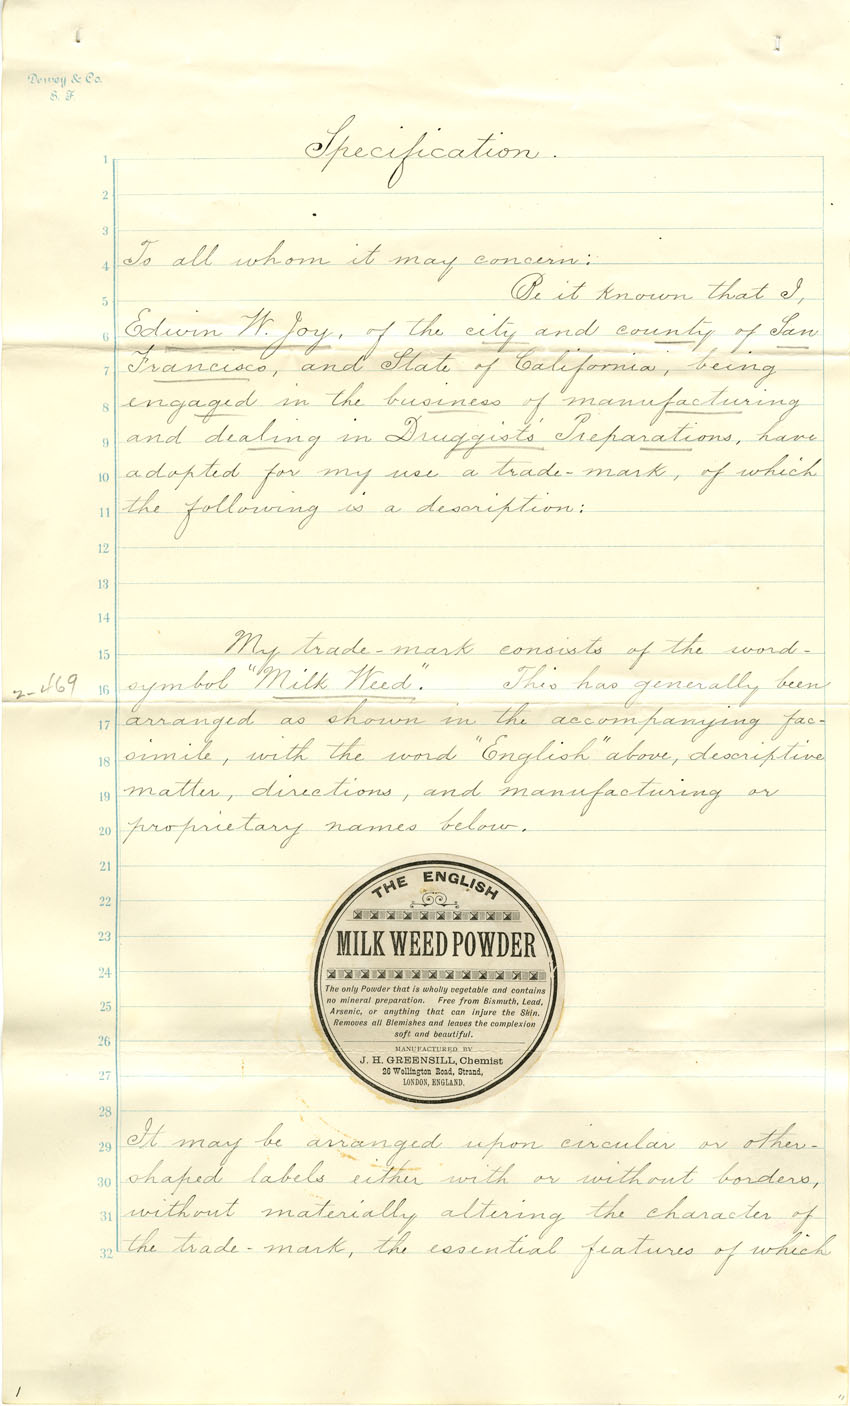 Dewey & Co.
S. F.
Specification.
1
2
3
4 To all whom it may concern:
5 Be it known that I,
6 Edwin W. Joy, of the city and county of San
7 Francisco, and State of California, being
8 engaged in the business of manufacturing
9 and dealing in Druggists' Preparations, have
10 adopted for my use a trade-mark, of which
11 the following is a description:
12
13
14
15 My trade-mark consists of the word-
2-469
16 symbol "Milk Weed". This has generally been
17 arranged as shown in the accompanying fac-
18 simile, with the word "English" above, descriptive
19 matter, directions, and manufacturing or
20 proprietary names below.
21
22
23
24
25
26
27
28
THE ENGLISH
MILK WEED POWDER
The only Powder that is wholly vegetable and contains
no mineral preparation. Free from Bismuth, Lead,
Arsenic, or anything that can injure the Skin.
Removes all Blemishes and leaves the complexion
soft and beautiful.
MANUFACTURED BY
J. H. GREENSILL, Chemist
26 Wellington Road, Strand,
LONDON, ENGLAND.
29 It may be arranged upon circular or other-
30 shaped labels either with or without borders,
31 without materially altering the character of
32 the trade-mark, the essential features of which
1